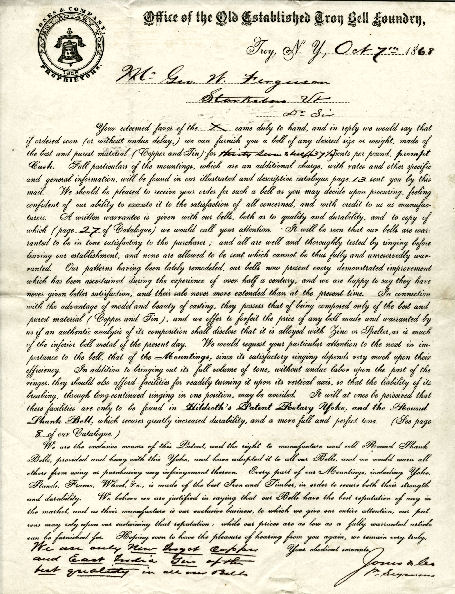 JONES & COMPANY
PROPRIETORS.
Office of the Old Established Troy Bell Foundry,
Troy, N Y, Oct 7th 1868
Mr Geo. W. Ferguson
Starksboro Vt
Dr Sir
Your esteemed favor of the came duly to hand, and in reply we would say that
if ordered soon (or without undue delay,) we can furnish you a bell of any desired size or weight, made of
the best and purest material (Copper and Tin) for cents per pound, for
Cash. Full particulars of the mountings, which are an additional charge, with rates and other specific
and general information, will be found in our illustrated and descriptive catalogue page 13 sent you by this
mail. We should be pleased to receive your order for such a bell as you may decide upon procuring, feeling
confident of our ability to execute it to the satisfaction of all concerned, and with credit to us as manufac-
turers. A written warrantee is given with our bells, both as to quality and durability, and to copy of
which (page 27 of Catalogue) we would call your attention. It will be seen that our bells are war-
ranted to be in tone satisfactory to the purchaser, and all are well and thoroughly tested by ringing before
leaving our establishment, and none are allowed to be sent which cannot be thus fully and unreservedly war-
ranted. Our patterns having been lately remodeled, our bells now present every demonstrated improvement
which has been ascertained during the experience of over half a century, and we are happy to say they have
never given better satisfaction, and their sale never more extended than at the present time. In connection
with the advantage of models and beauty of casting, they possess that of being composed only of the best and
purest material (Copper and Tin), and we offer to forfeit the price of any bell made and warranted by
us if an authentic analysis of its composition shall disclose that it is alloyed with Zinc or Spelter, as is much
of the inferior bell metal of the present day. We would request your particular attention to the next in im-
portance to the bell, that of the Mountings, since its satisfactory ringing depends very much upon their
efficiency. In addition to bringing out its full volume of tone, without undue labor upon the part of the
ringer, they should also afford facilities for readily turning it upon its vertical axis, so that the liability of its
breaking, through long-continued ringing in one position, may be avoided. It will at once be perceived that
these facilities are only to be found in Hildreth's Patent Rotary Yoke, and the Reversed
Shank Bell, which secures greatly increased durability, and a more full and perfect tone. (See page
8 of our Catalogue.)
We are the exclusive owners of this Patent, and the right to manufacture and sell Round Shank
Bells, provided and hung with this Yoke, and have adapted it to all our Bells, and we would warn all
others from using or purchasing any infringement thereon. Every part of our Mountings, including Yoke,
Stands, Frame, Wheel, &c., is made of the best Iron and Timber, in order to secure both their strength
and durability. We believe we are justified in saying that our Bells have the best reputation of any in
the market, and as their manufacture is our exclusive business, to which we give our entire attention, our pat-
rons may rely upon our sustaining that reputation, while our prices are as low as a fully warranted article
can be furnished for. Hoping soon to have the pleasure of hearing from you again, we remain very truly,
Your obedient servants,
We use only New Ingot Copper
and East India Tin of the
best quality in all our Bells
Jones & Co